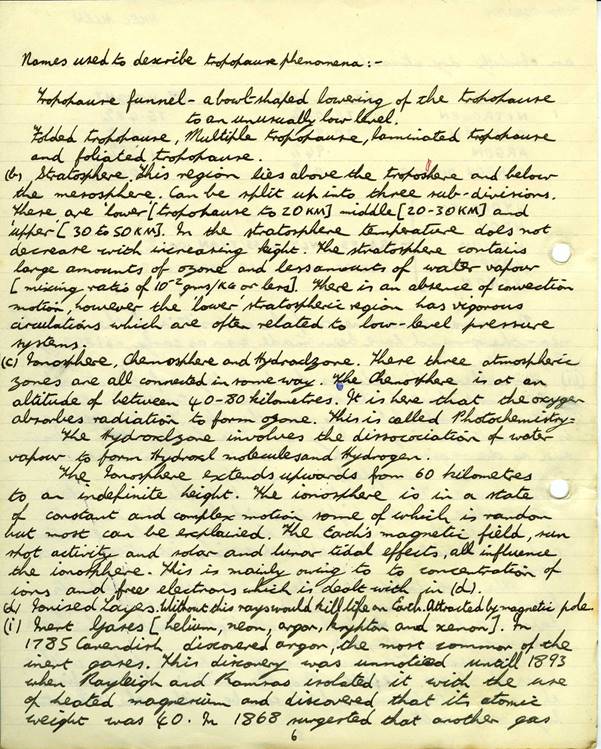 Names used to describe tropopause phenomena:-
Tropopause funnel - a bowl shaped lowering of the tropopause
to an unusually low level.
Folded tropopause, Multiple tropopause, laminated tropopause
and foliated tropopause.
(b) Stratosphere. This region lies above the troposhere and below
the mesosphere. Can be split up into three sub-divisions.
These are 'lower' [tropopause to 20KM] middle [20-30KM] and
'upper' [30 to 50KM]. In the stratosphere temperature does not
decrease with increasing hight. The stratosphere contains
large amounts of ozone and less amounts of water vapour
[mixing ratio of 10-2 gms/KG or less]. There is an absence of convection
motion, however the 'lower' stratospheric region has vigorous
circulations which are often related to low-level pressure
systems.
(c) Ionosphere, Chemosphere and Hydroxlzone. These three atmospheric
zones are all connected in some way. The Chemosphere is at an
altitude of between 40-80 kilometres. It is here that the oxygen
absorbes radiation to form ozone. This is called Photochemistry.
The Hydroxlzone involves the dissocociation of water
vapour to form Hydroxl molecules and Hydrogen.
The Ionosphere extends upwards from 60 kilometres
to an indefinite height. The ionosphere is in a state
of constant and complex motion some of which is randon
but most can be explaicied. The Earth's magnetic field, sun
spot activity and solar and lunar tidal effects, all influence
the ionosphere. This is mainly owing to to concentration of
ions and free electrons which is dealt with in (d).
(d) Ionised Layes. Without this rays would kill life on Earth. Attracted by magnetic pole.
(i) Inert Gases [helium, neon, argon, krypton and xenon]. In
1785 Cavendish discovered argon, the most common of the
inert gases. This discovery was unnoticed untill 1893
when Rayleigh and Ramsas isolated it with the use
of heated magnesium and discovered that its atomic
weight was 40. In 1868 surgested that another gas
6